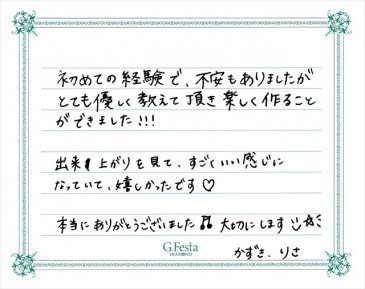 初めての経験で、不安もありましたが
とても優しく教えて頂き楽しく作ること
ができました!!!
出来上がりを見て、すごくいい感じに
なっていて、嬉しかったです♡
本当にありがとうございました♫ 大切にします
G.Festa
DIAMOND
かずき、りさ